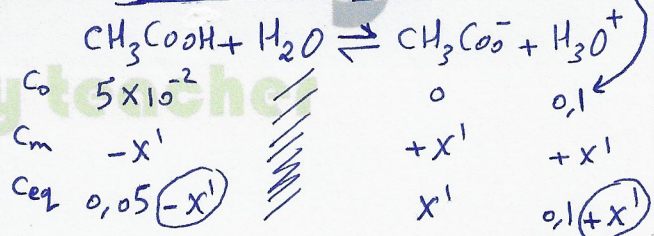 CH₃COOH + H₂O ⇌ CH₃COO⁻ + H₃O⁺
C₀ 5×10⁻² 0 0,1
Cm -x' +x' +x'
Ceq 0,05 -x' x' 0,1 +x'